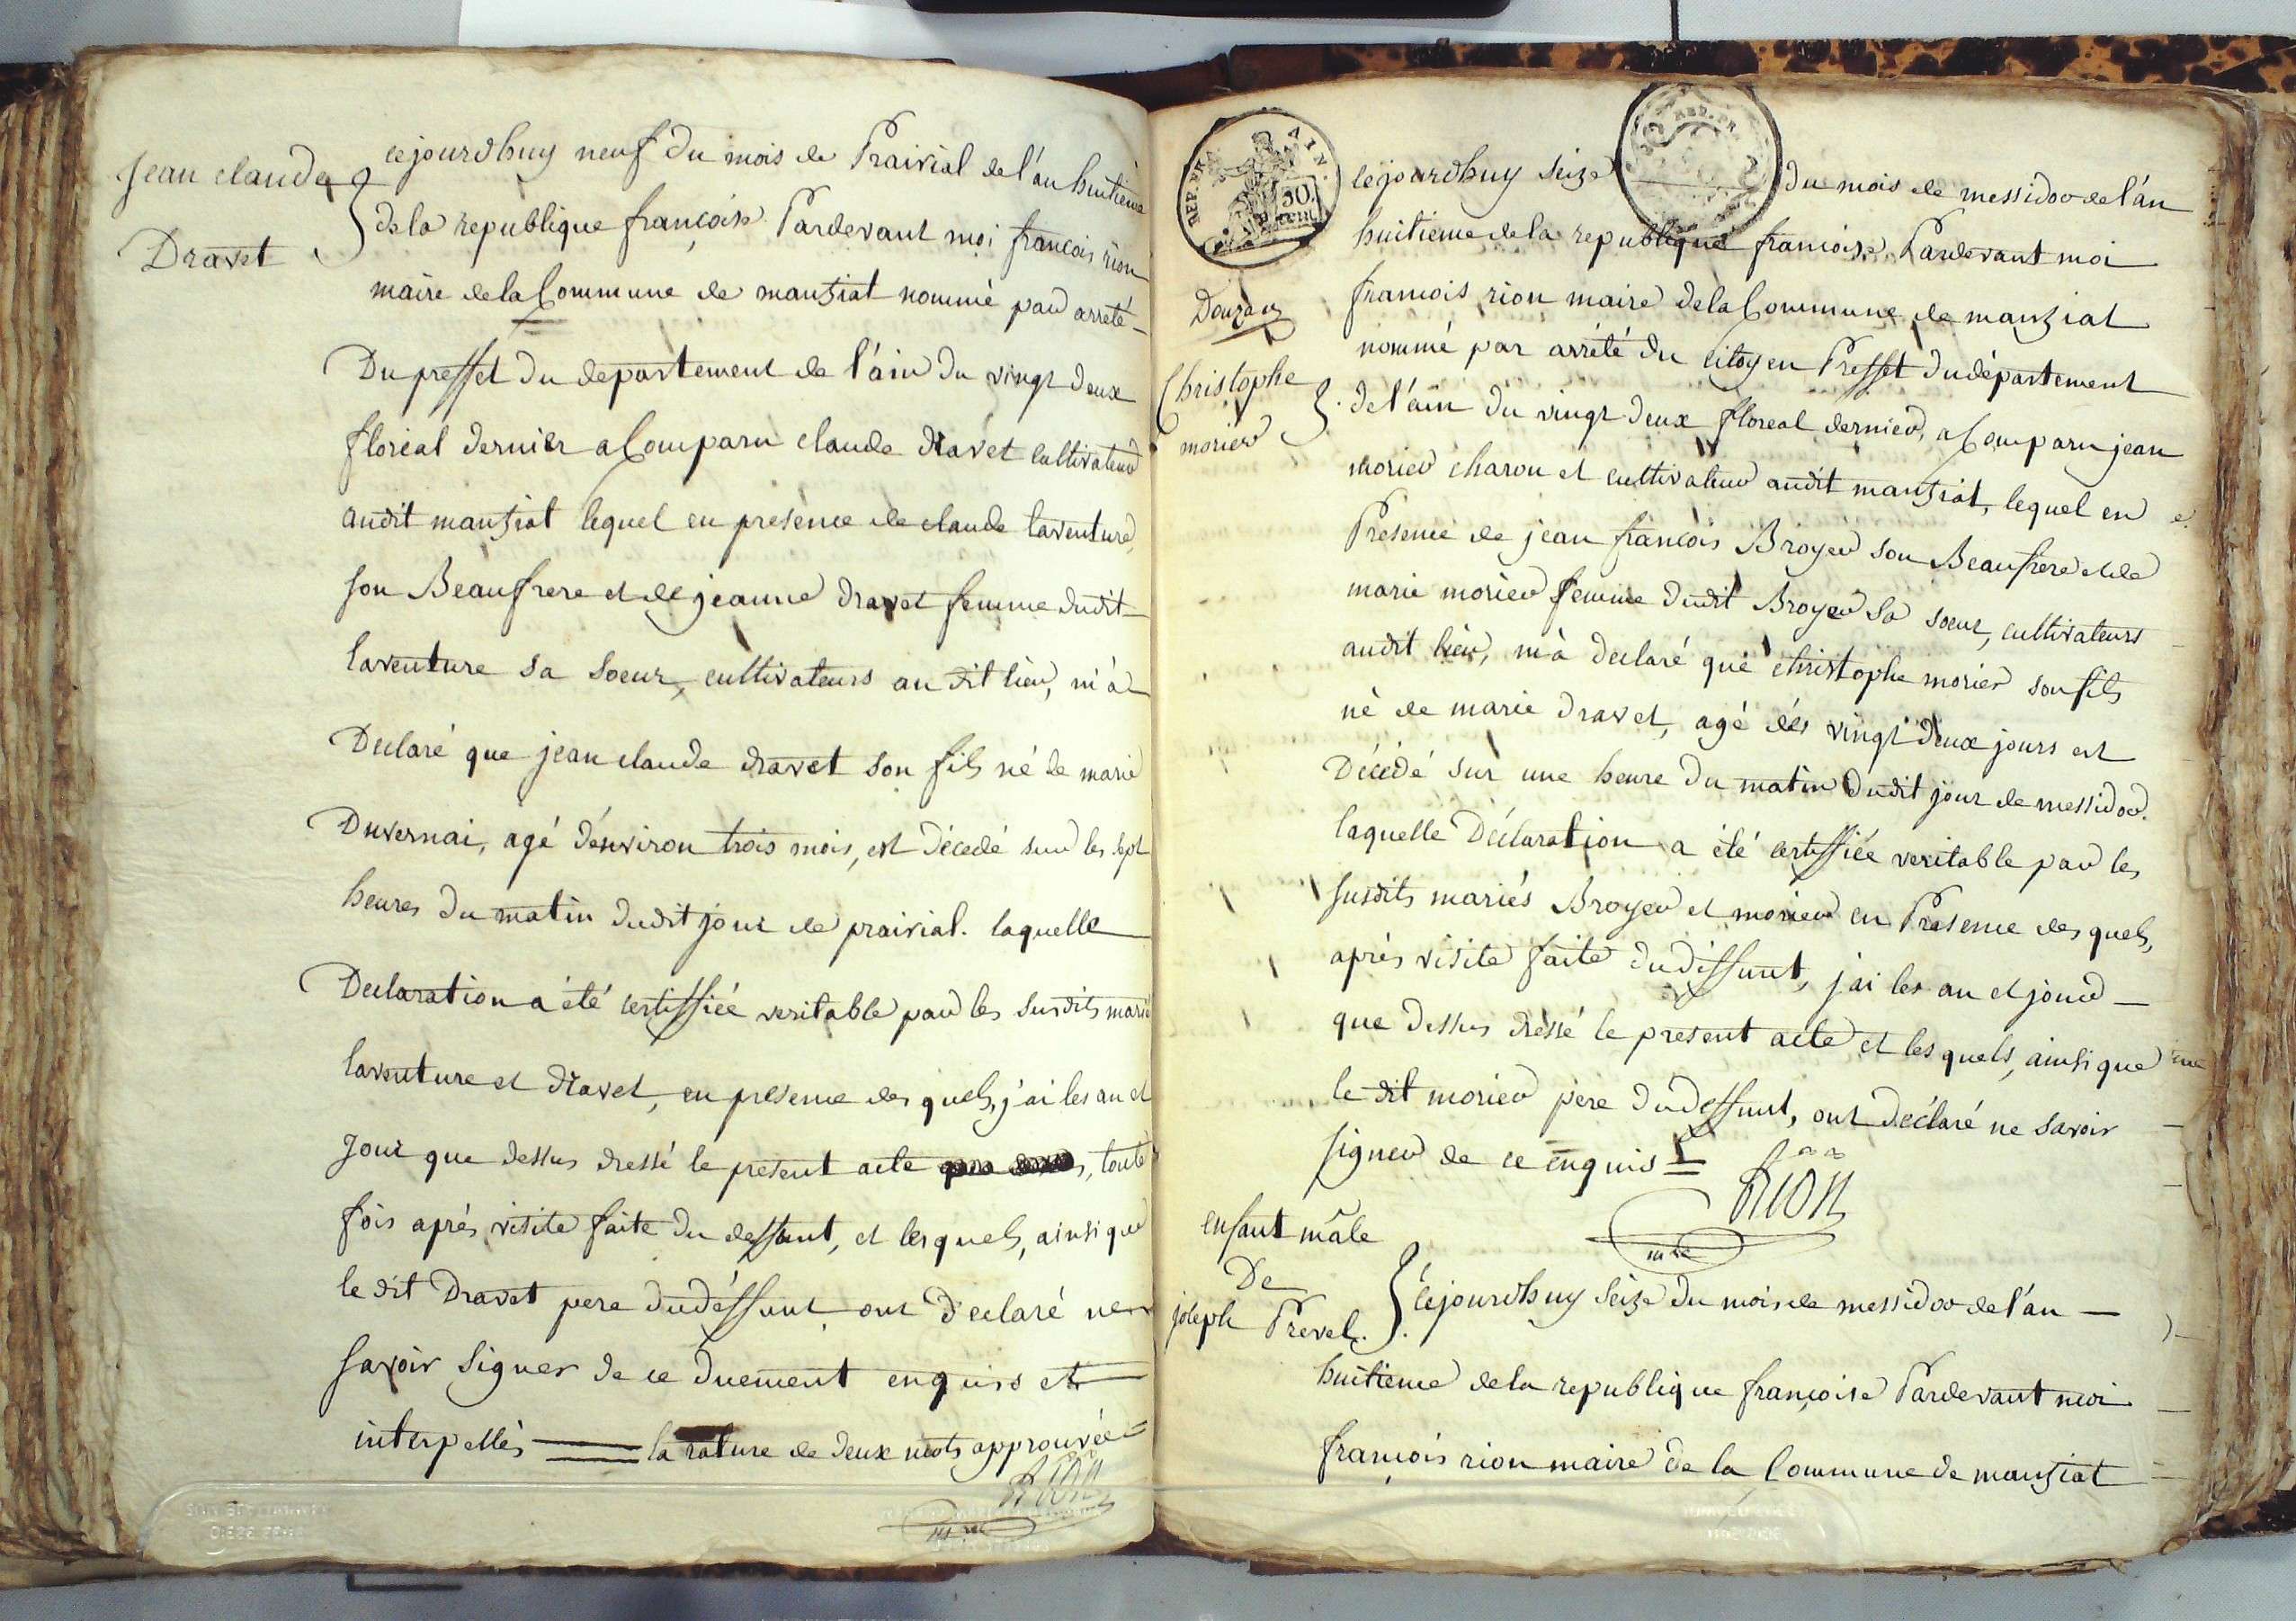 Jean claude
Dravet
cejourdhuy neuf du mois de Prairial de l'an huitieme
de la republique françoise Pardevant moi francois rion
maire de la Commune de manziat nommé par arreté
Du preffet du departement de l'ain du vingt deux
floreal dernier a Comparu claude dravet cultivateur
audit manziat lequel en presence de claude laventure
son Beaufrere et de jeanne dravet femme dudit
laventure sa soeur, cultivateurs au dit lieu, m'à
Declaré que jean claude dravet son fils né de marie
Duvernai, agé d'environ trois mois, est décedé sur les sept
heures du matin dudit jour de prairial. laquelle
Declaration a été certiffiée veritable par les susdits mariés
laventure et dravet, en presence des quels, j'ai les an et
jour que dessus dressé le present acte, toute
fois après visite faite du deffunt, et lesquels, ainsi que
le dit Dravet pere du déffunt ont declaré ne
savoir signer de ce duement enquis et
interpellés la rature de deux mots approuvée
Rion
mre
REP. FRA. AIN.
50
cent
RED. FR.
Douze
Christophe
morier
cejourdhuy seize du mois de messidor de l'an
huitieme de la republique françoise Pardevant moi
francois rion maire de la Commune de manziat
nommé par arrété du citoyen Preffet du département
de l'ain du vingt deux floreal dernier, a Comparu jean
morier charon et cultivateur audit manziat, lequel en
Presence de jean francois Broyer son Beaufrere et de
marie morier femme dudit Broyer sa soeur, cultivateurs
audit lieu, m'à declaré que christophe morier son fils
né de marie dravet, agé dés vingt deux jours est
Décédé sur une heure du matin dudit jour de messidor.
laquelle Déclaration a été certiffiée veritable par les
susdits mariés Broyer et morier en Presence des quels,
après visite faite du diffunt, j'ai les an et jour
que dessus dressé le present acte et les quels, ainsi que
le dit morier père du deffunt, ont declaré ne savoir
signer de ce enquis
Rion
mre
enfant mâle
De
joseph Prevel.
Cejourdhuy seize du mois de messidor de l'an
huitieme de la republique françoise Pardevant moi
françois rion maire de la Commune de manziat